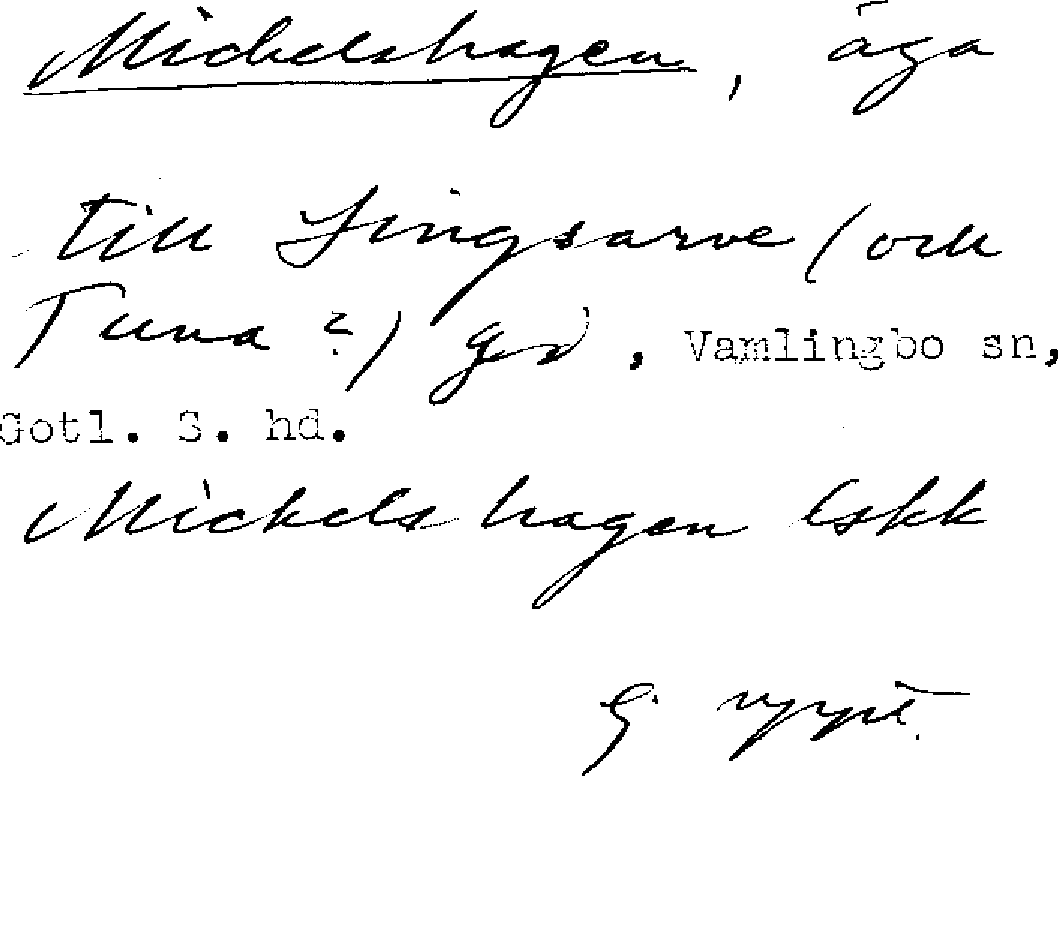 Mickelshagen, äga
till Lingsarve (och
Tuna ?) gd, Vamlingbo sn,
Gotl. S. hd.
Mickelshagen lskk
G